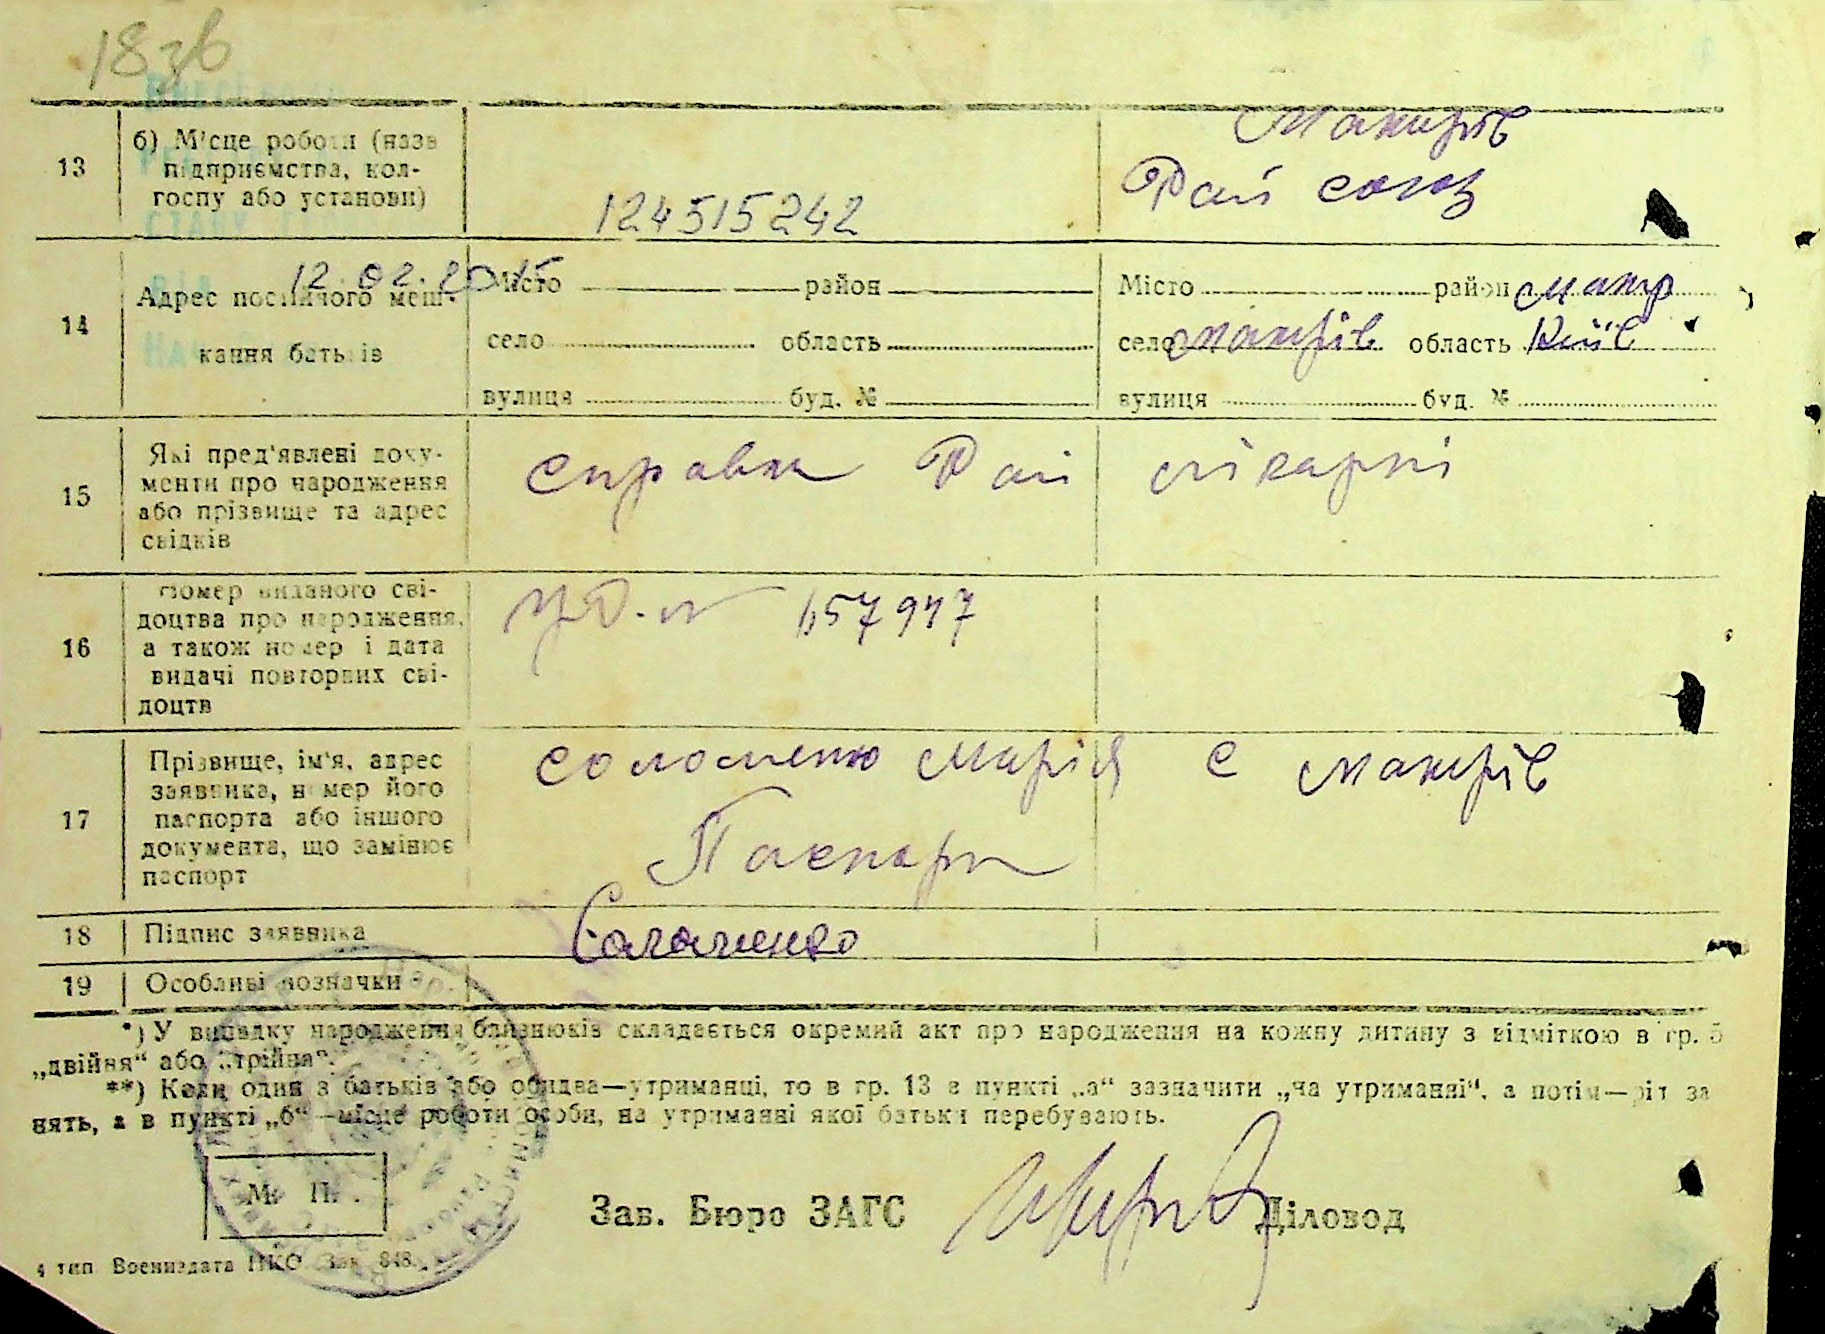 18зв
13
б) М'сце роботи (назв
підприємства, кол-
госпу або установи)
124515242
Макарів
Рай союз
14
Адрес постійного меш-
кання батьків
12.02.2015
Місто район
село область
вулиця буд. №
Місто район Макар
село Макарів область Київ
вулиця буд. №
15
Які пред'явлені доку-
менти про народження
або прізвище та адрес
свідків
справка Рай лікарні
16
Номер виданого сві-
доцтва про народження,
а також номер і дата
видачі повторних сві-
доцтв
657947
17
Прізвище, ім'я, адрес
заявника, номер його
паспорта або іншого
документа, що замінює
паспорт
Соломенко Марія с Макарів
Паспорт
18
Підпис заявника
Соломенко
19
Особливі позначки
*) У випадку народження близнюків складається окремий акт про народження на кожну дитину з відміткою в гр. 5
„двійня“ або „трійня“.
**) Коли один з батьків або обидва—утриманці, то в гр. 13 в пункті „а“ зазначити „на утриманні“, а потім—ріт за
нять, а в пункті „б“—місце роботи особи, на утриманні якої батьки перебувають.
М. П.
Зав. Бюро ЗАГС
Діловод
4 тип Воениздата НКО Зак 848.